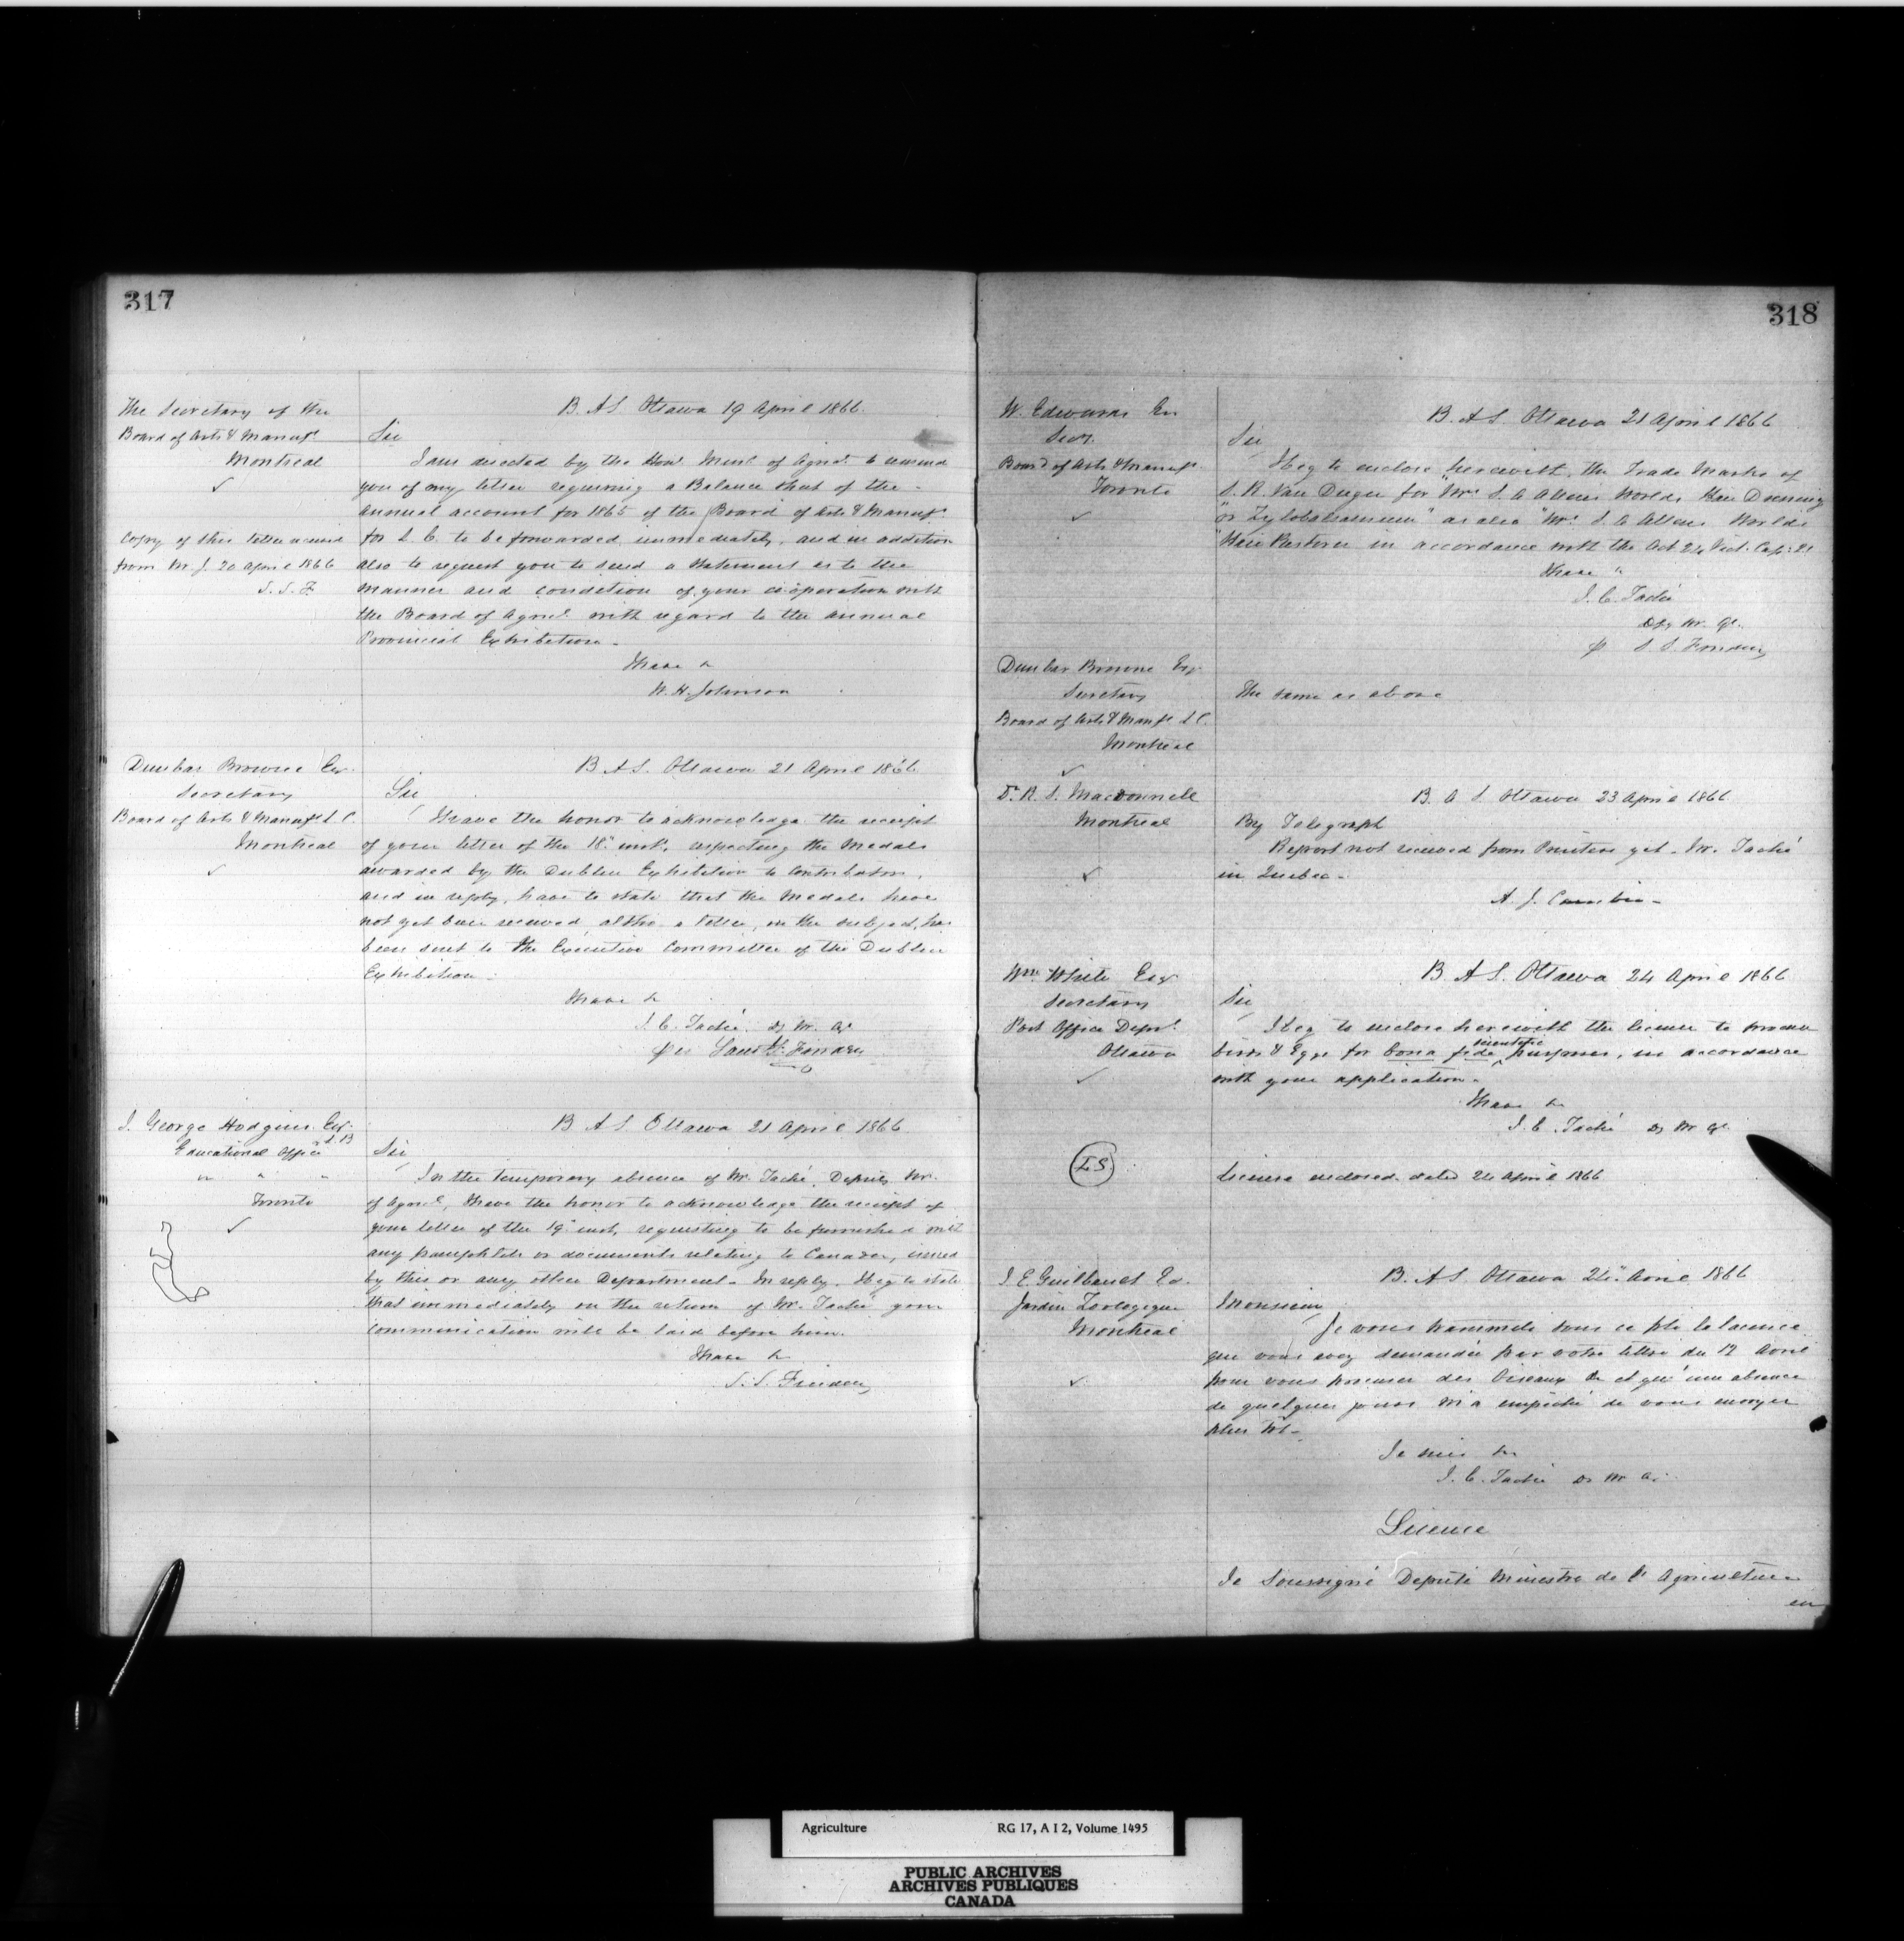 317
The Secretary of the
Board of Arts & Manufs
Montreal
✓
Copy of this letter
from M. J. 20 April 1866
S. S. F
B. A S. Ottawa 19 April 1866.
Sir
I am directed by the Honl. Minr. of Agricl. to remind
you of my letter requiring a Balance sheet of the
annual account for 1865 of the Board of Arts & Manufs
for L. C. to be forwarded immediately, and in addition
also to request you to send a statement as to the
manner and condition of your coöperation with
the Board of Agricl. with regard to the annual
Provincial Exhibition.
I have &c
W. H. Johnson
Dunbar Browne Esqr.
Secretary
Board of Arts & Manufs L. C.
Montreal
✓
B A S. Ottawa 21 April 1866
Sir
I have the honor to acknowledge the receipt
of your letter of the 18 inst., respecting the Medals
awarded by the Dublin Exhibition to Contributors,
and in reply, have to state that the Medals have
not yet been received, altho a letter, on the subject, has
been sent to the Executive Committee of the Dublin
Exhibition.
I have &c
J. C. Taché. Dy M. Ag
J. George Hodgins. Esq.
Educational Office
" " "
Toronto
✓
B A S Ottawa 21 April 1866
Sir
In the temporary absence of Mr. Taché, Deputy Mr.
of Agricl, I have the honor to acknowledge the receipt of
your letter of the 19 inst, requesting to be furnished with
any pamphlets or documents relating to Canada, issued
by this or any other Department. In reply, I beg to state
that immediately on the return of Mr. Taché your
communication will be laid before him.
I have &c
318
W. Edwards Esr
Secy.
Board of Arts & Manufs.
Toronto
✓
B. A S. Ottawa 21 April 1866
Sir
I beg to enclose herewith, the Trade Marks of
S. R. Van Duzer for "Mrs S. A Allens Worlds Hair Dressing
"or Zylobalsamum" as also "Mrs. S. A Allens Worlds
"Hair Restorer in accordance with the Act 24 Vict. Cap: 21
I have "
J. C. Taché
Dy M. Ag.
Dunbar Browne Esqr
Secretary
Board of Arts & Manfs L C.
Montreal
✓
The same as above
Dr. R. L. Macdonnell
Montreal
✓
B. A S Ottawa 23 April 1866
By Telegraph
Report not received from Printers yet. Mr. Taché
in Quebec.
A. J. Cambie
Wm. White Esqr
Secretary
Post Office Depart.
Ottawa
✓
B. A S. Ottawa 24 April 1866
Sir
I beg to enclose herewith the licence to procure
birds & Eggs for bona fide scientific purposes, in accordance
with your application.
I have &c
J. C. Taché Dy M Ag.
LS
Licence enclosed. dated 24 April 1866
J. E. Guilbault Es.
Jardin Zoologique
Montreal
✓
B. A S Ottawa 24 Avril 1866
Monsieur,
Je vous transmets sous ce pli la licence
que vous avez demandée par votre lettre du 12 Avril
pour vous procurer des Oiseaux &c et qu'une absence
de quelques jours m'a empêché de vous envoyer
plus tôt.
Je suis &c
J. C. Taché Dy M Ag.
Licence
Je Soussigné Deputé Ministre de l'Agriculture
en
Agriculture RG 17, A I 2, Volume 1495
PUBLIC ARCHIVES
ARCHIVES PUBLIQUES
CANADA